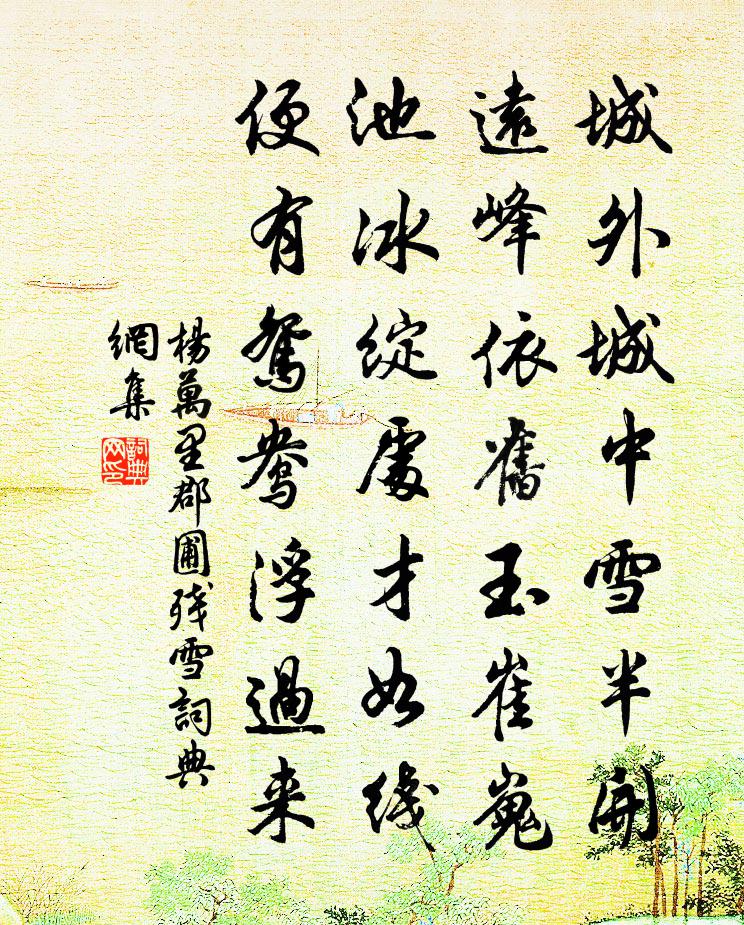 城外城中雪半開
遠峰依舊玉崔嵬
池冰綻處才如綫
便有鴛鴦浮過来
楊萬里郡圃残雪詞典
網集
詞典
网印